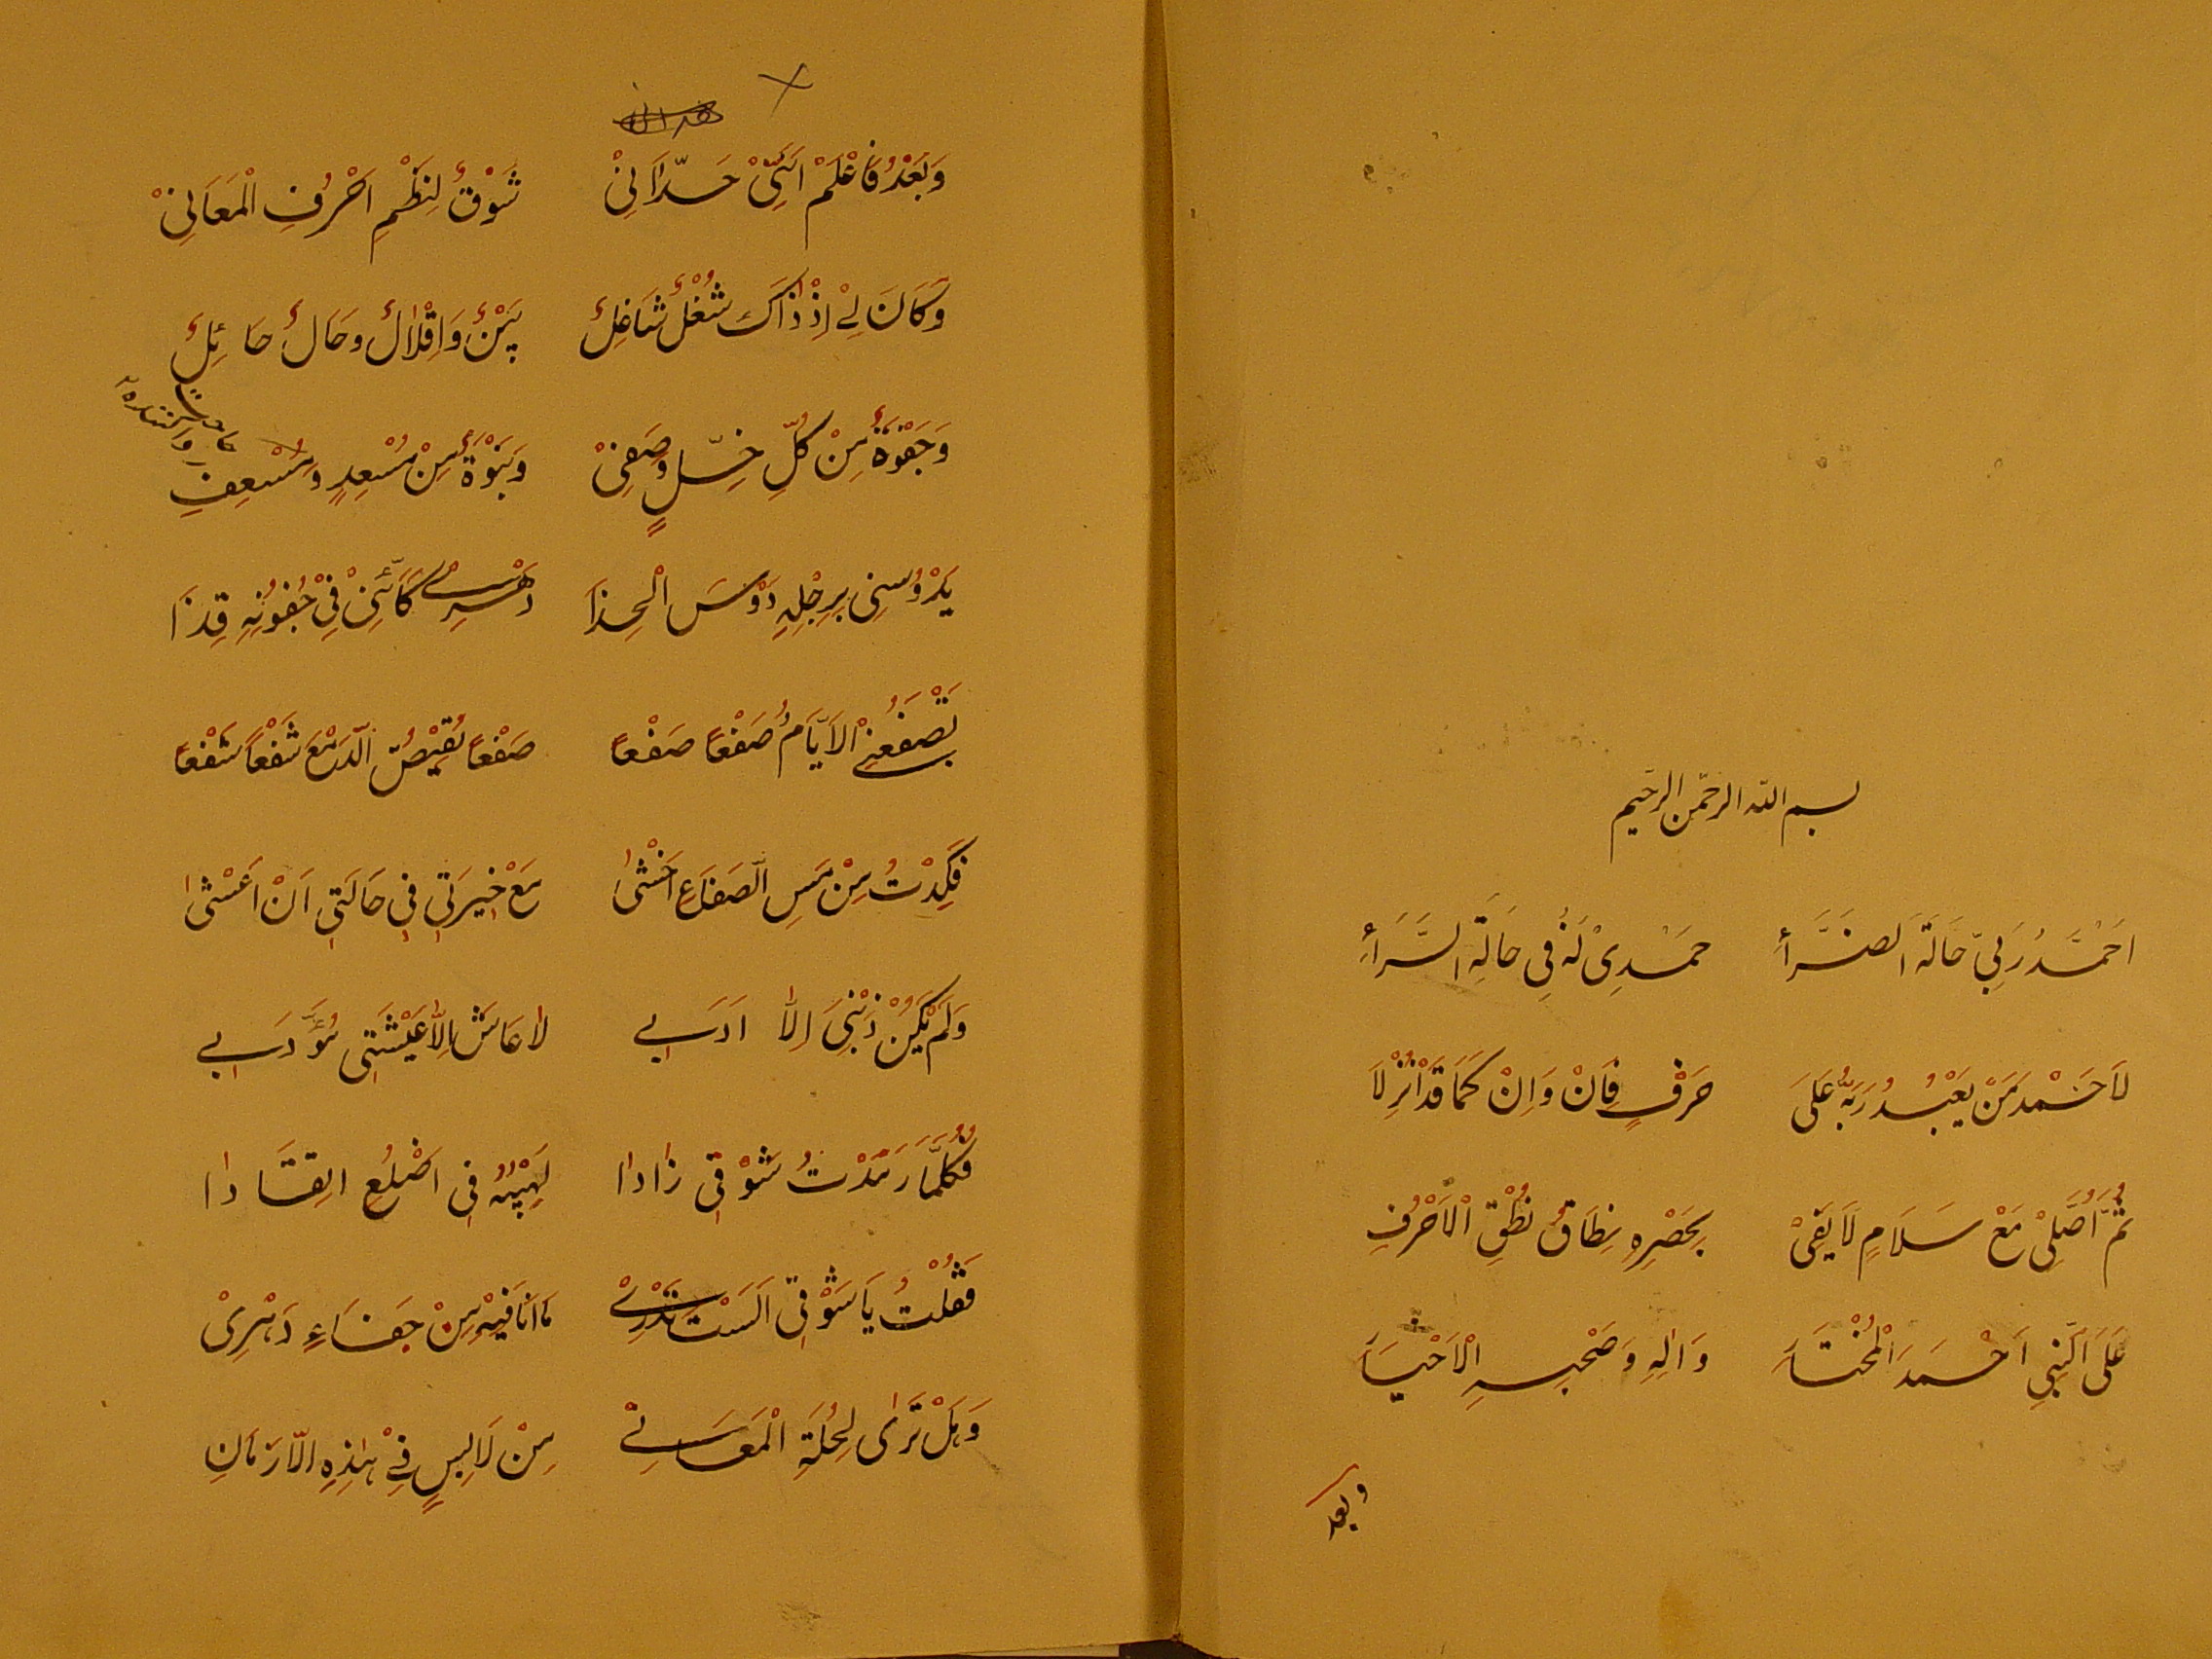 بسم الله الرحمن الرحيم
اَحْمَدُ رَبِّي حَالَةَ الضَّرَّاءِ حَمْدِيْ لَهُ فِي حَالَةِ السَّرَّاءِ
لَا حَمْدَ مَنْ يَعْبُدُ رَبَّهُ عَلَى حَرْفٍ فَاِنْ وَاِنْ كَمَا قَدْ اُنْزِلَا
ثُمَّ اُصَلِّيْ مَعْ سَلَامٍ لَا يَفِيْ بِحَصْرِهِ نِطَاقُ نُطْقِ الْاَحْرُفِ
عَلَى النَّبِيِّ اَحْمَدَ الْمُخْتَارِ وَاٰلِهِ وَصَحْبِهِ الْاَخْيَارِ
وبعد
وَبَعْدُ فَاعْلَمْ اَنَّنِيْ حَدَانِيْ شَوْقٌ لِنَظْمِ اَحْرُفِ الْمَعَانِيْ
وَكَانَ لِيْ اِذْ ذَاكَ شُغْلٌ شَاغِلٌ بَيْنٌ وَاِقْلَالٌ وَحَالٌ حَائِلٌ
وَجَفْوَةٌ مِنْ كُلِّ خِلٍّ وَصَفِيْ وَنَبْوَةٌ مِنْ مُسْعِدٍ وَمُسْعِفِ
يَدُوْسُنِي بِرِجْلِهِ دَوْسَ الْحِذَا دَهْرِيْ كَاَنَّنِيْ فِيْ جُفُوْنِهِ قَذَا
تَصْفَعُنِيْ الْاَيَّامُ صَفْعًا صَفْعًا صَفْعًا يُقِيْضُ الدَّمْعَ شَفْعًا شَفْعًا
فَكِدْتُ مِنْ مَسِّ الصَّفَاعِ اَخْشٰى مَعْ خِيرَتِي فِي حَالَتِي اَنْ اَعْشٰى
وَلَمْ يَكُنْ ذَنْبِيَ اِلَّا اَدَبِي لَا عَاشَ اِلَّا عَيْشَتِي مُؤَدِّبِي
فَكُلَّمَا رَدَدْتُ شَوْقِي زَادَا لَهِيْبُهُ فِي اَضْلُعِ اتِّقَادَا
فَقُلْتُ يَا شَوْقِيْ اَلَسْتَ تَدْرِيْ مَا اَنَا فِيْهِ مِنْ جَفَاءِ دَهْرِيْ
وَهَلْ تَرٰى لِحُلَّةِ الْمَعَانِيْ مِنْ لَابِسٍ فِيْ هٰذِهِ الْاَزْمَانِ